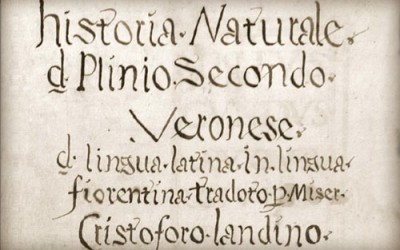 historia · Naturale ·
đ · Plinio · Secondo ·
Veronese ·
đ · lingua · latina · in · lingua ·
fiorentina · tradoto · ꝑ · Miser ·
Cristoforo · landino ·